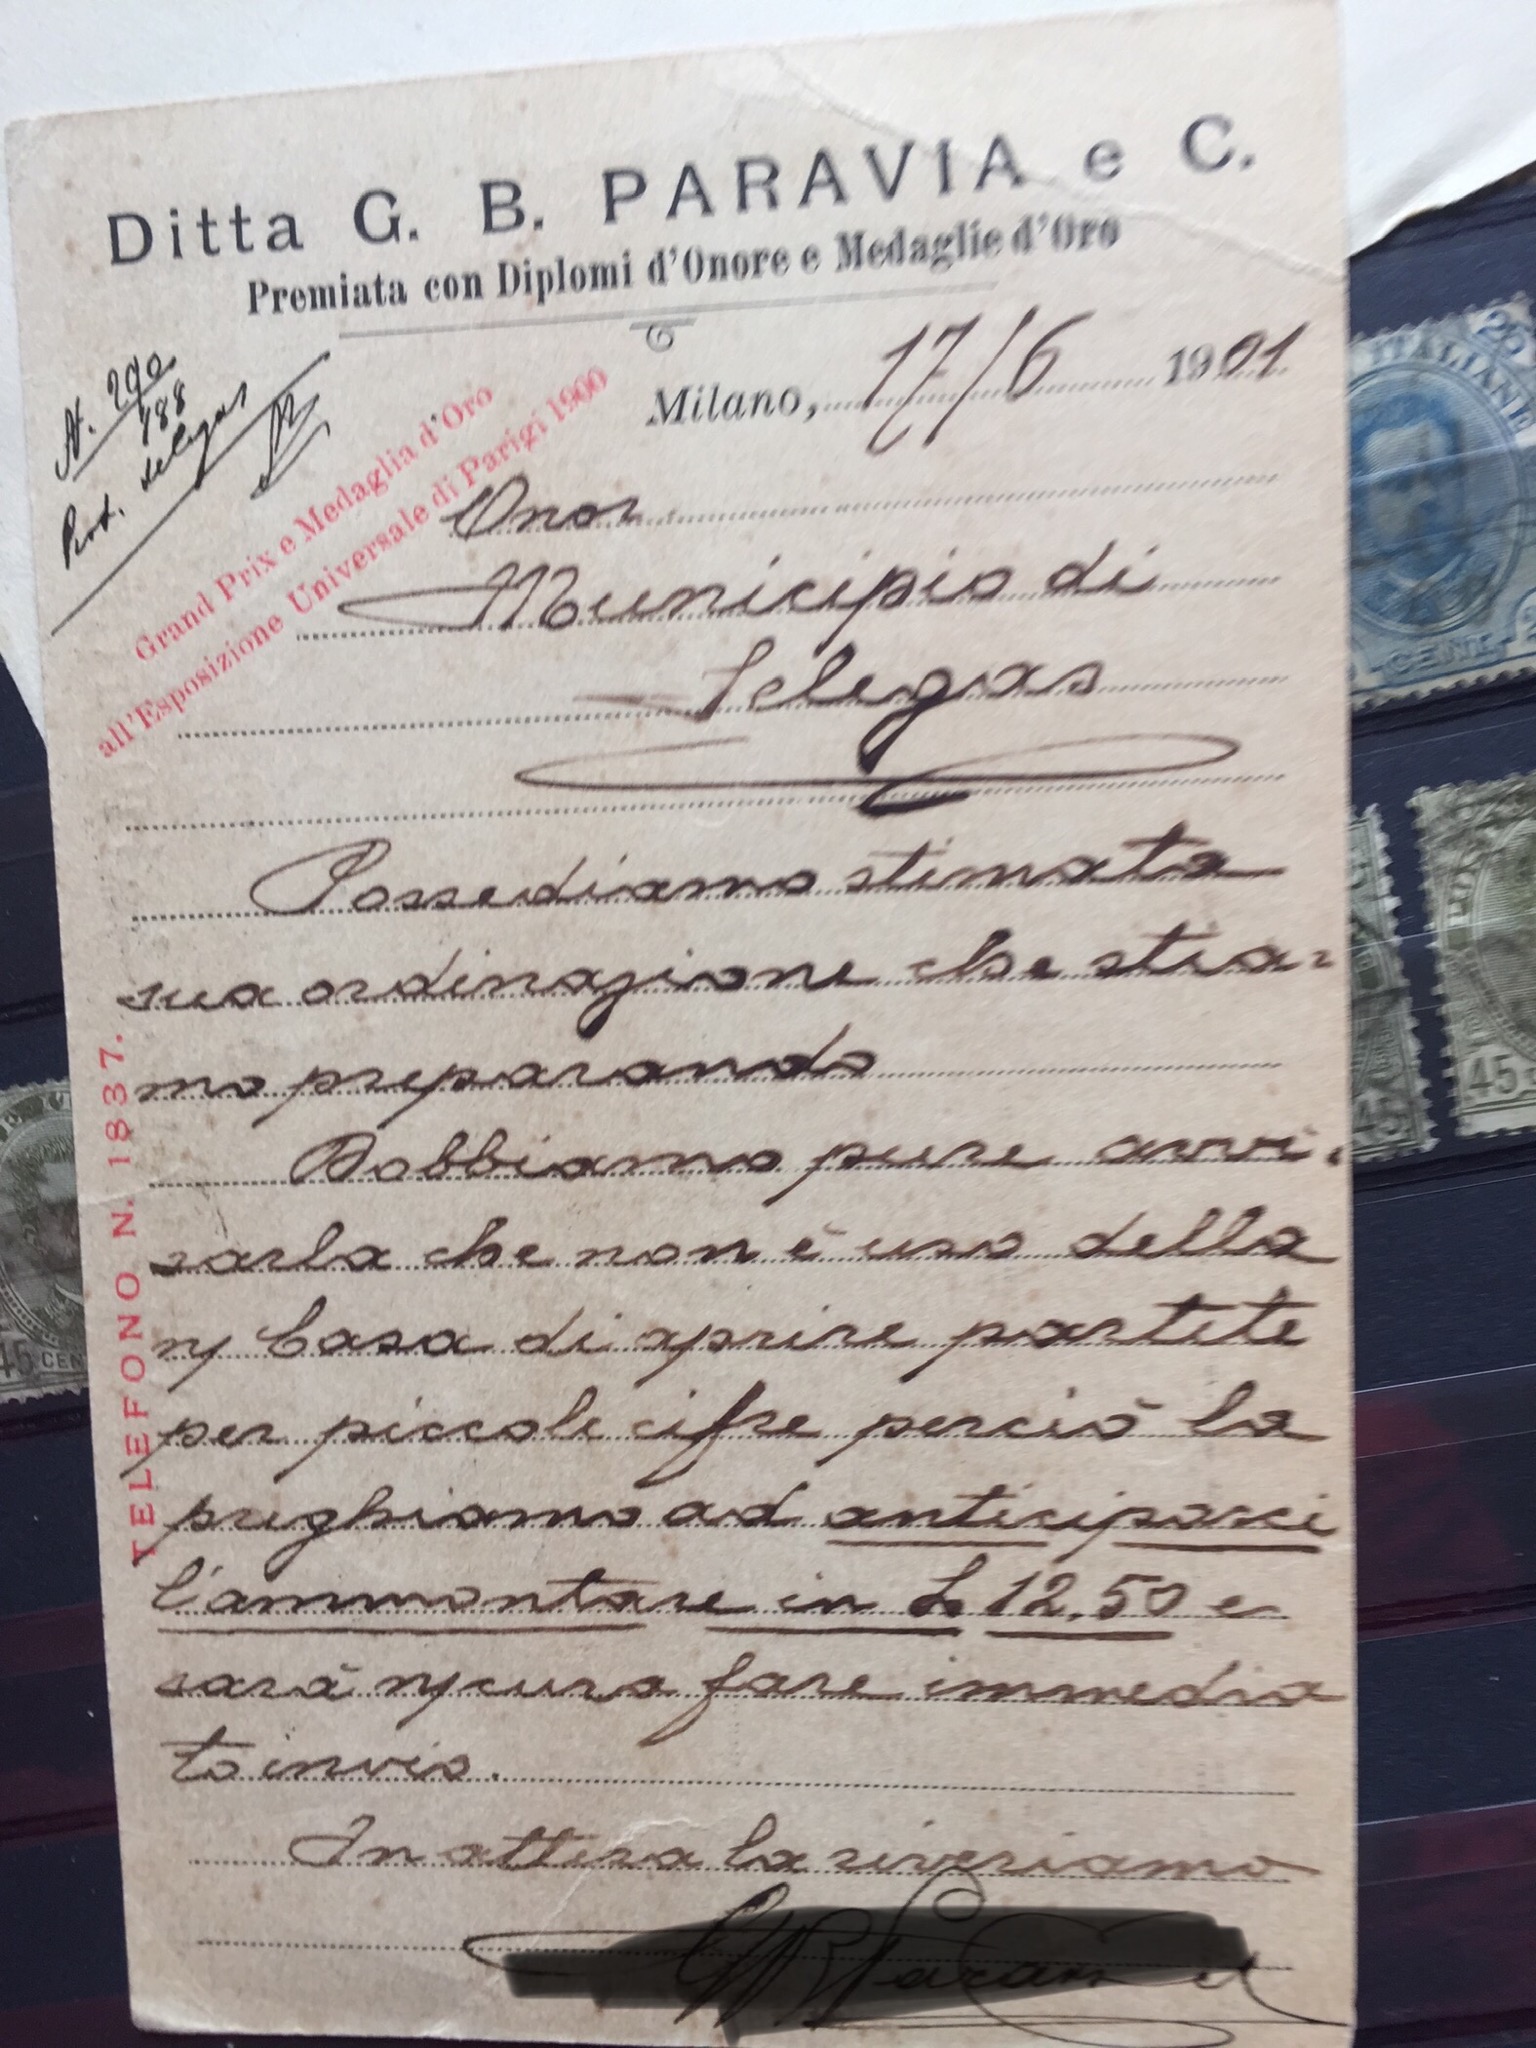 Ditta G. B. PARAVIA e C.
Premiata con Diplomi d'Onore e Medaglie d'Oro
Milano, 17/6 1901
N. 290
188
Prot. Selegas
Grand Prix e Medaglia d'Oro
all'Esposizione Universale di Parigi 1900
Onor
Municipio di
Selegas
Possediamo stimata
sua ordinazione che stia=
mo preparando
Dobbiamo pure avvi=
sarla che non è uso della
n/ Casa di aprire partite
per piccole cifre perciò la
preghiamo ad anticiparci
l'ammontare in L 12,50 e
sarà n/ cura fare immedia
to invio.
In attesa la riveriamo
TELEFONO N. 1837.
ITALIANE
CENT.
45
45
45 CEN